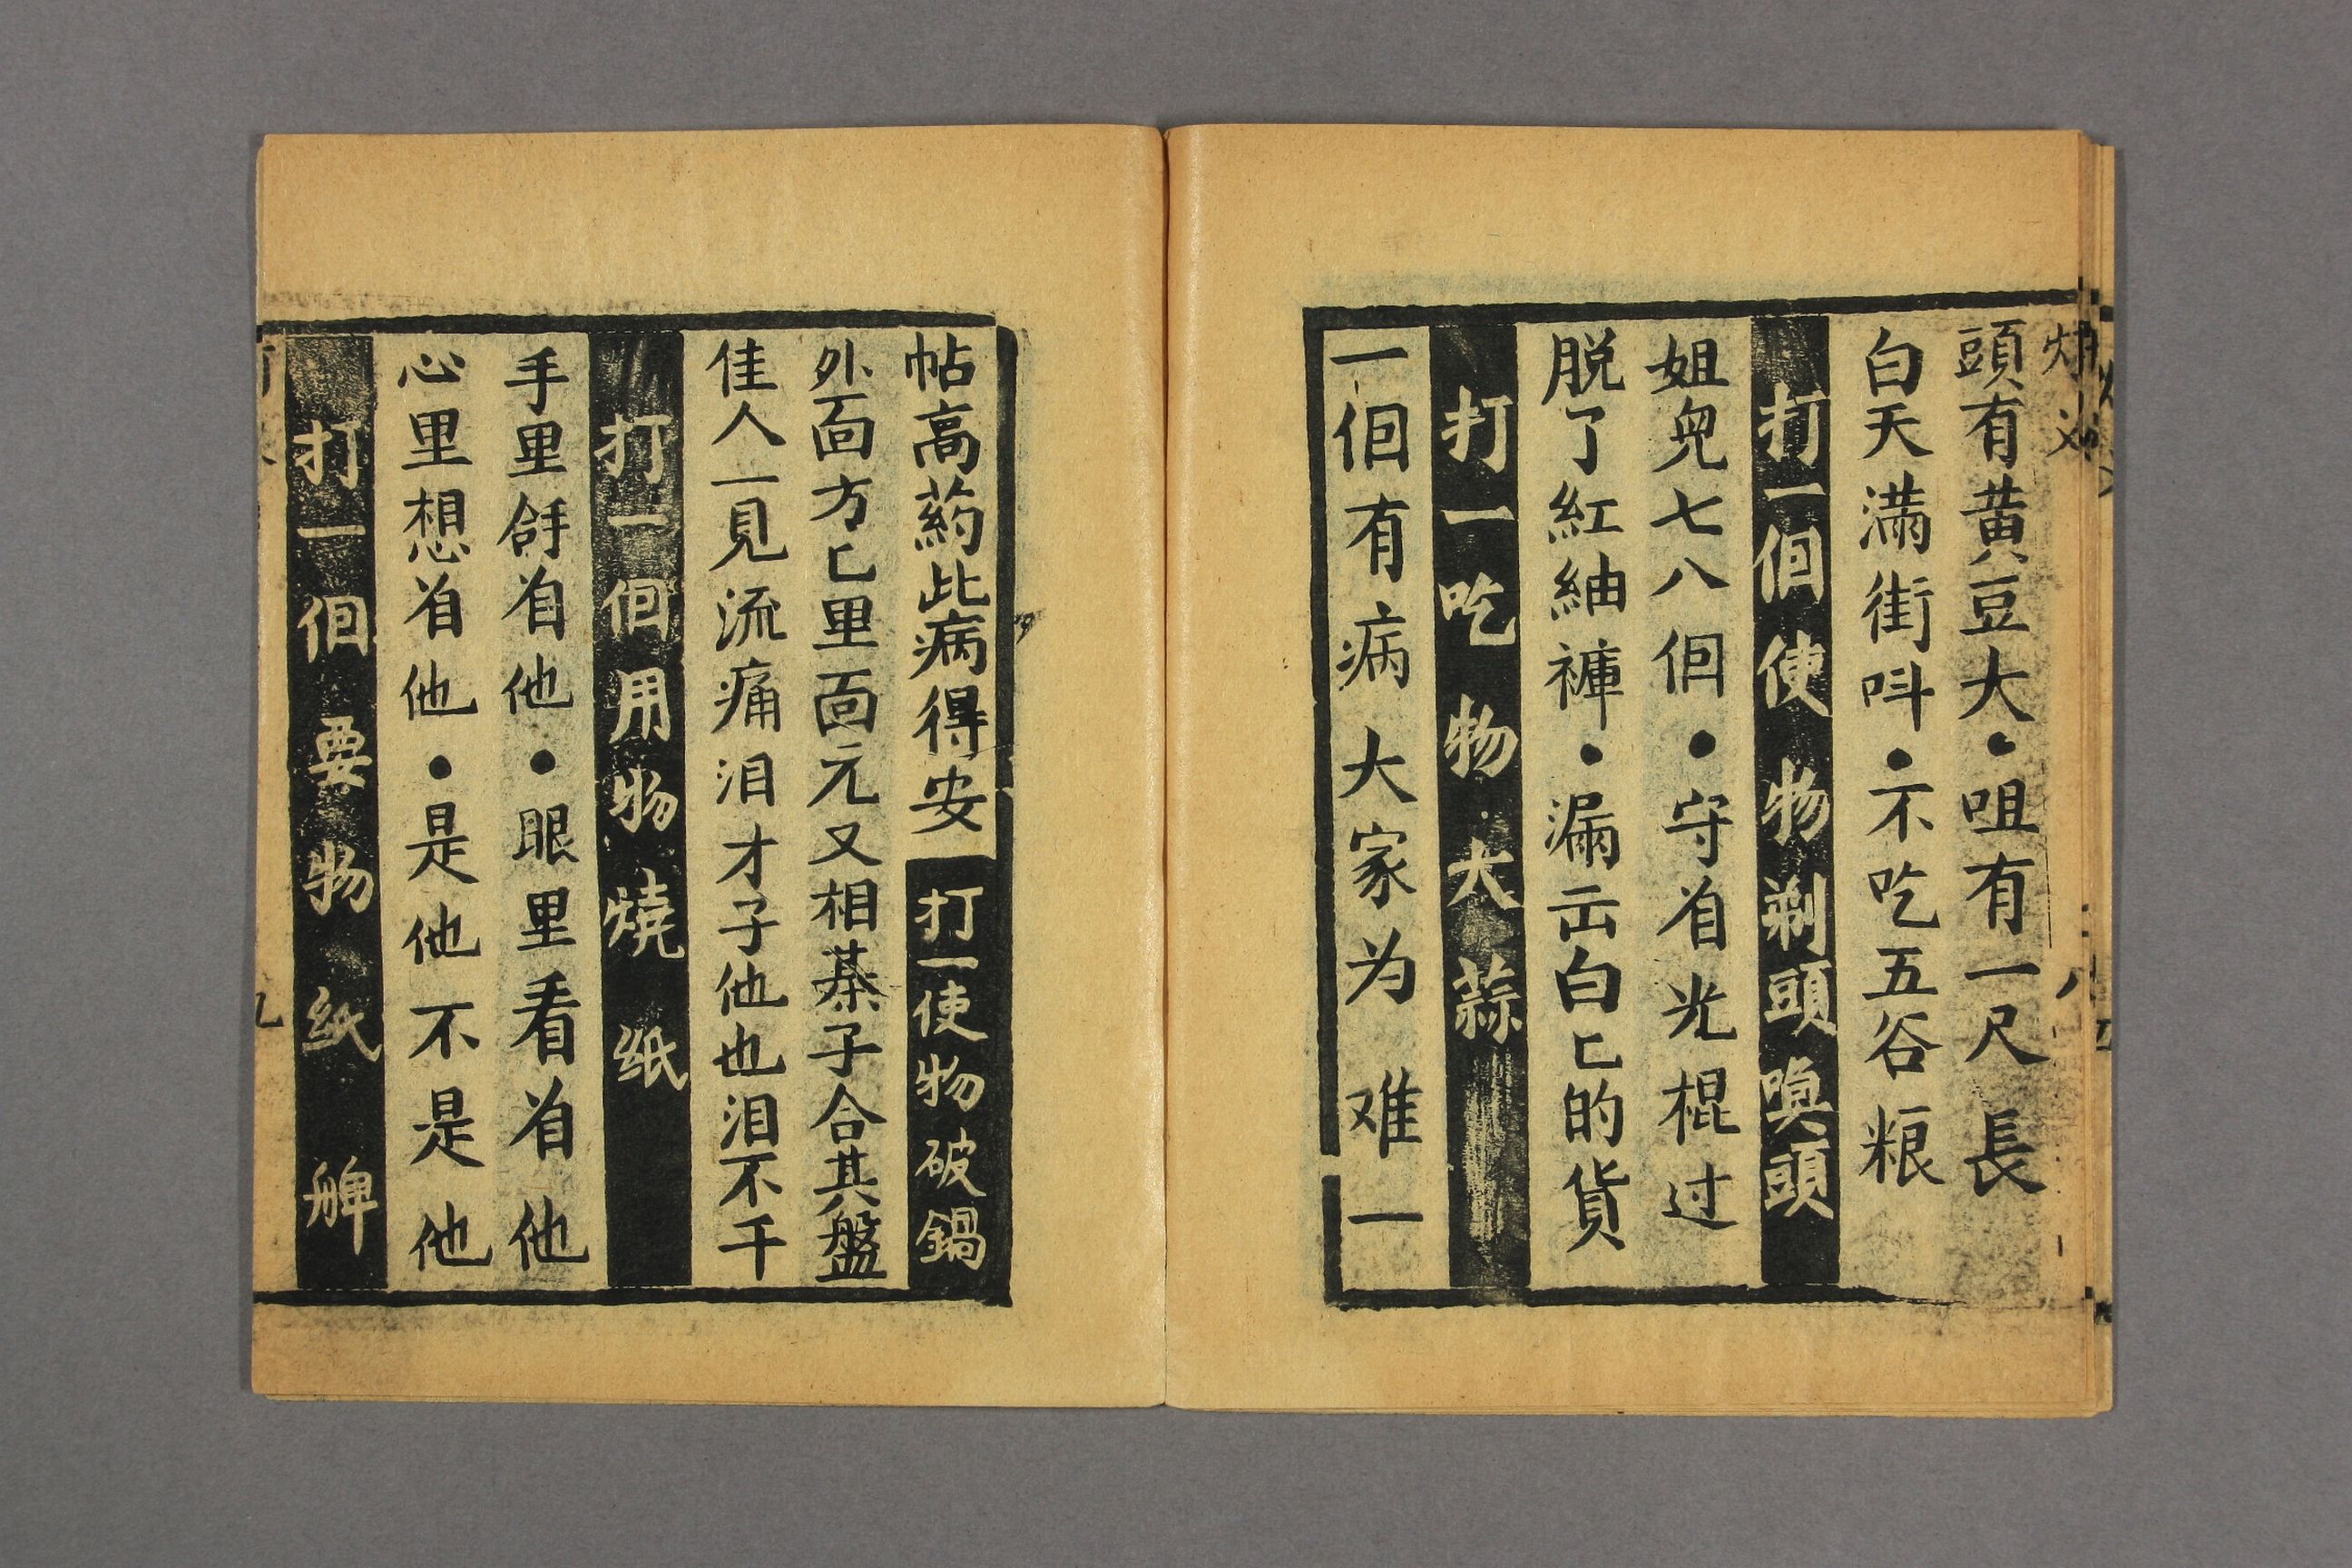 頭有黄豆大●咀有一尺長
白天满街呌●不吃五谷粮
打一佪使物剃頭喚頭
姐兒七八佪●守着光棍过
脱了紅紬褲●漏出白匕的貨
打一吃物大蒜
一佪有病大家为难一
帖高葯此病得安 打一使物破鍋
外面方匕里面元又相棊子合其盤
佳人一見流痛泪才子他也泪不干
打一佪用物燒纸
手里拿着他●眼里看着他
心里想着他●是他不是他
打一佪要物纸牌